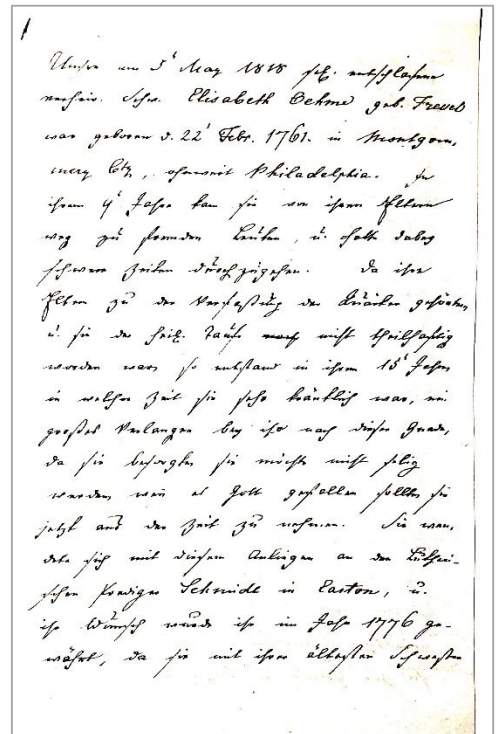 1
Unsre am 5t May 1818 sel. entschlafene
verheir. Schw. Elisabeth Oehme geb. Frevel
war geboren d. 22t Febr. 1761. in Montgom„
mery Cty., ohnweit Philadelphia. In
ihrem 9t Jahre kam sie von ihren Eltern
weg zu fremden Leuten, u. hatte dabey
schwere Zeiten durchzugehen. Da ihre
Eltern zu der Verfaßung der Quäker gehörten,
u. sie der heil. Taufe noch nicht theilhaftig
worden war, so entstand in ihrem 15t Jahre
in welcher Zeit sie sehr kränklich war, ein
großes Verlangen bey ihr nach dieser Gnade,
da sie besorgte, sie möchte nicht selig
werden wen es Gott gefallen sollte sie
jetzt aus der Zeit zu nehmen. Sie wen„
dete sich mit diesem Anliegen an den Lutheri-
schen Prediger Schmidt in Easton, u.
ihr Wunsch wurde ihr im Jahr 1776 ge-
währt, da sie mit ihrer ältesten Schwester